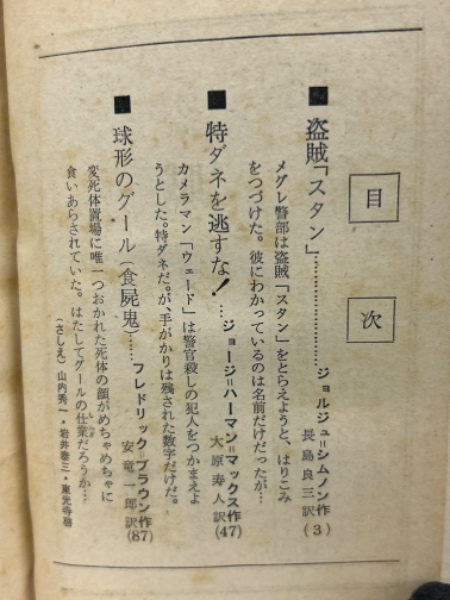 目次
■盗賊「スタン」……………………ジョルジュ=シムノン作
長島良三訳(3)
メグレ警部は盗賊「スタン」をとらえようと、はりこみ
をつづけた。彼にわかっているのは名前だけだったが…
■特ダネを逃すな!…ジョージ=ハーマン=マックス作
大原寿人訳(47)
カメラマン「ウェード」は警官殺しの犯人をつかまえよ
うとした。特ダネだ。が、手がかりは残された数字だけだ。
■球形のグール(食屍鬼)……フレドリック=ブラウン作
安竜一郎訳(87)
変死体置場に唯一つおかれた死体の顔がめちゃめちゃに
食いあらされていた。はたしてグールの仕業だろうか…
(さしえ)山内秀一・岩井泰三・東光寺啓